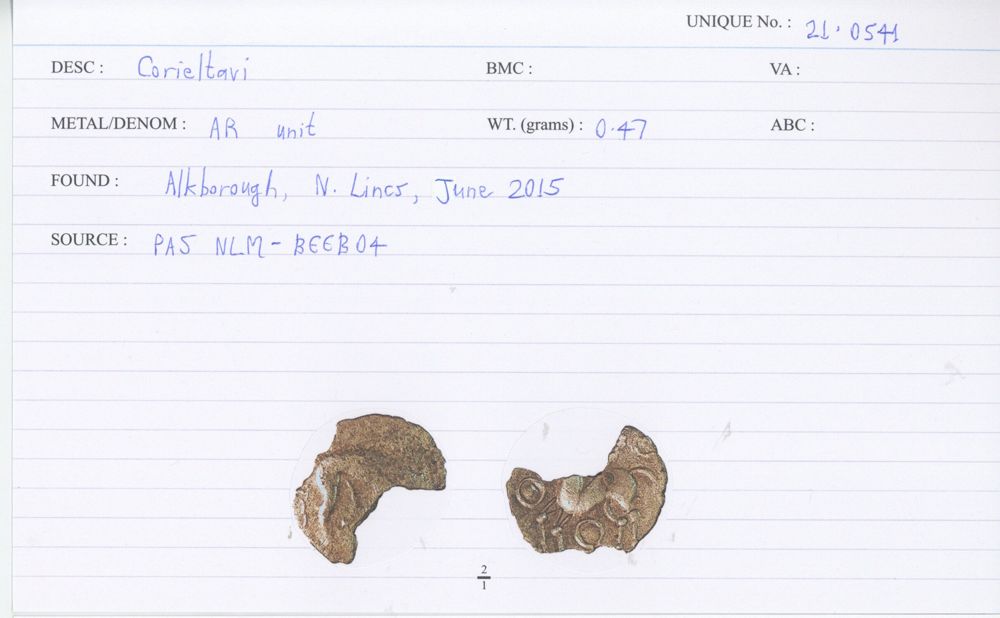 UNIQUE No. : 21·0541
DESC : Corieltavi BMC : VA :
METAL/DENOM : AR unit WT. (grams) : 0·47 ABC :
FOUND : Alkborough, N. Lincs, June 2015
SOURCE : PAS NLM-BEEB04
2
1